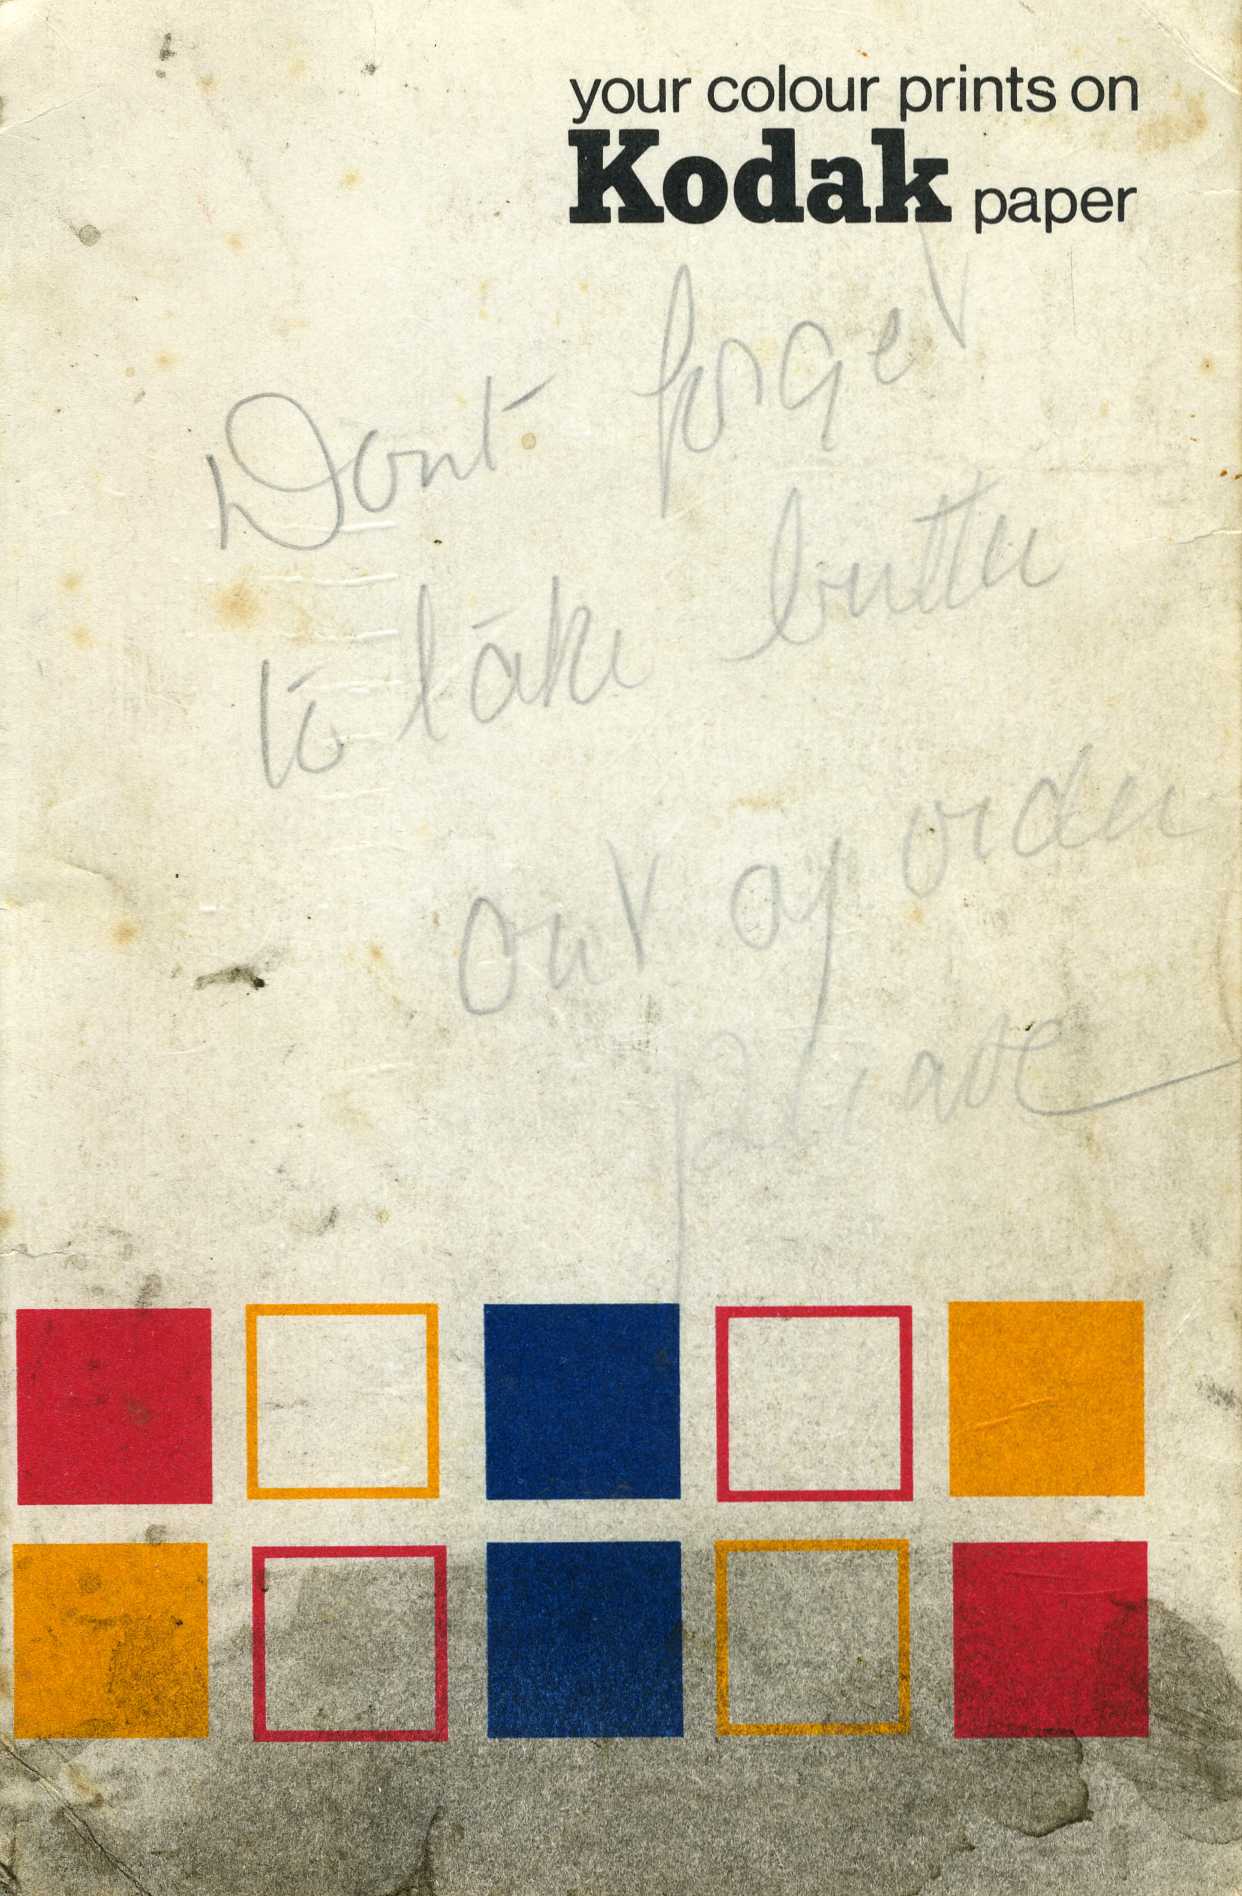 your colour prints on
Kodak paper
Dont forget
to take butter
out of order
please